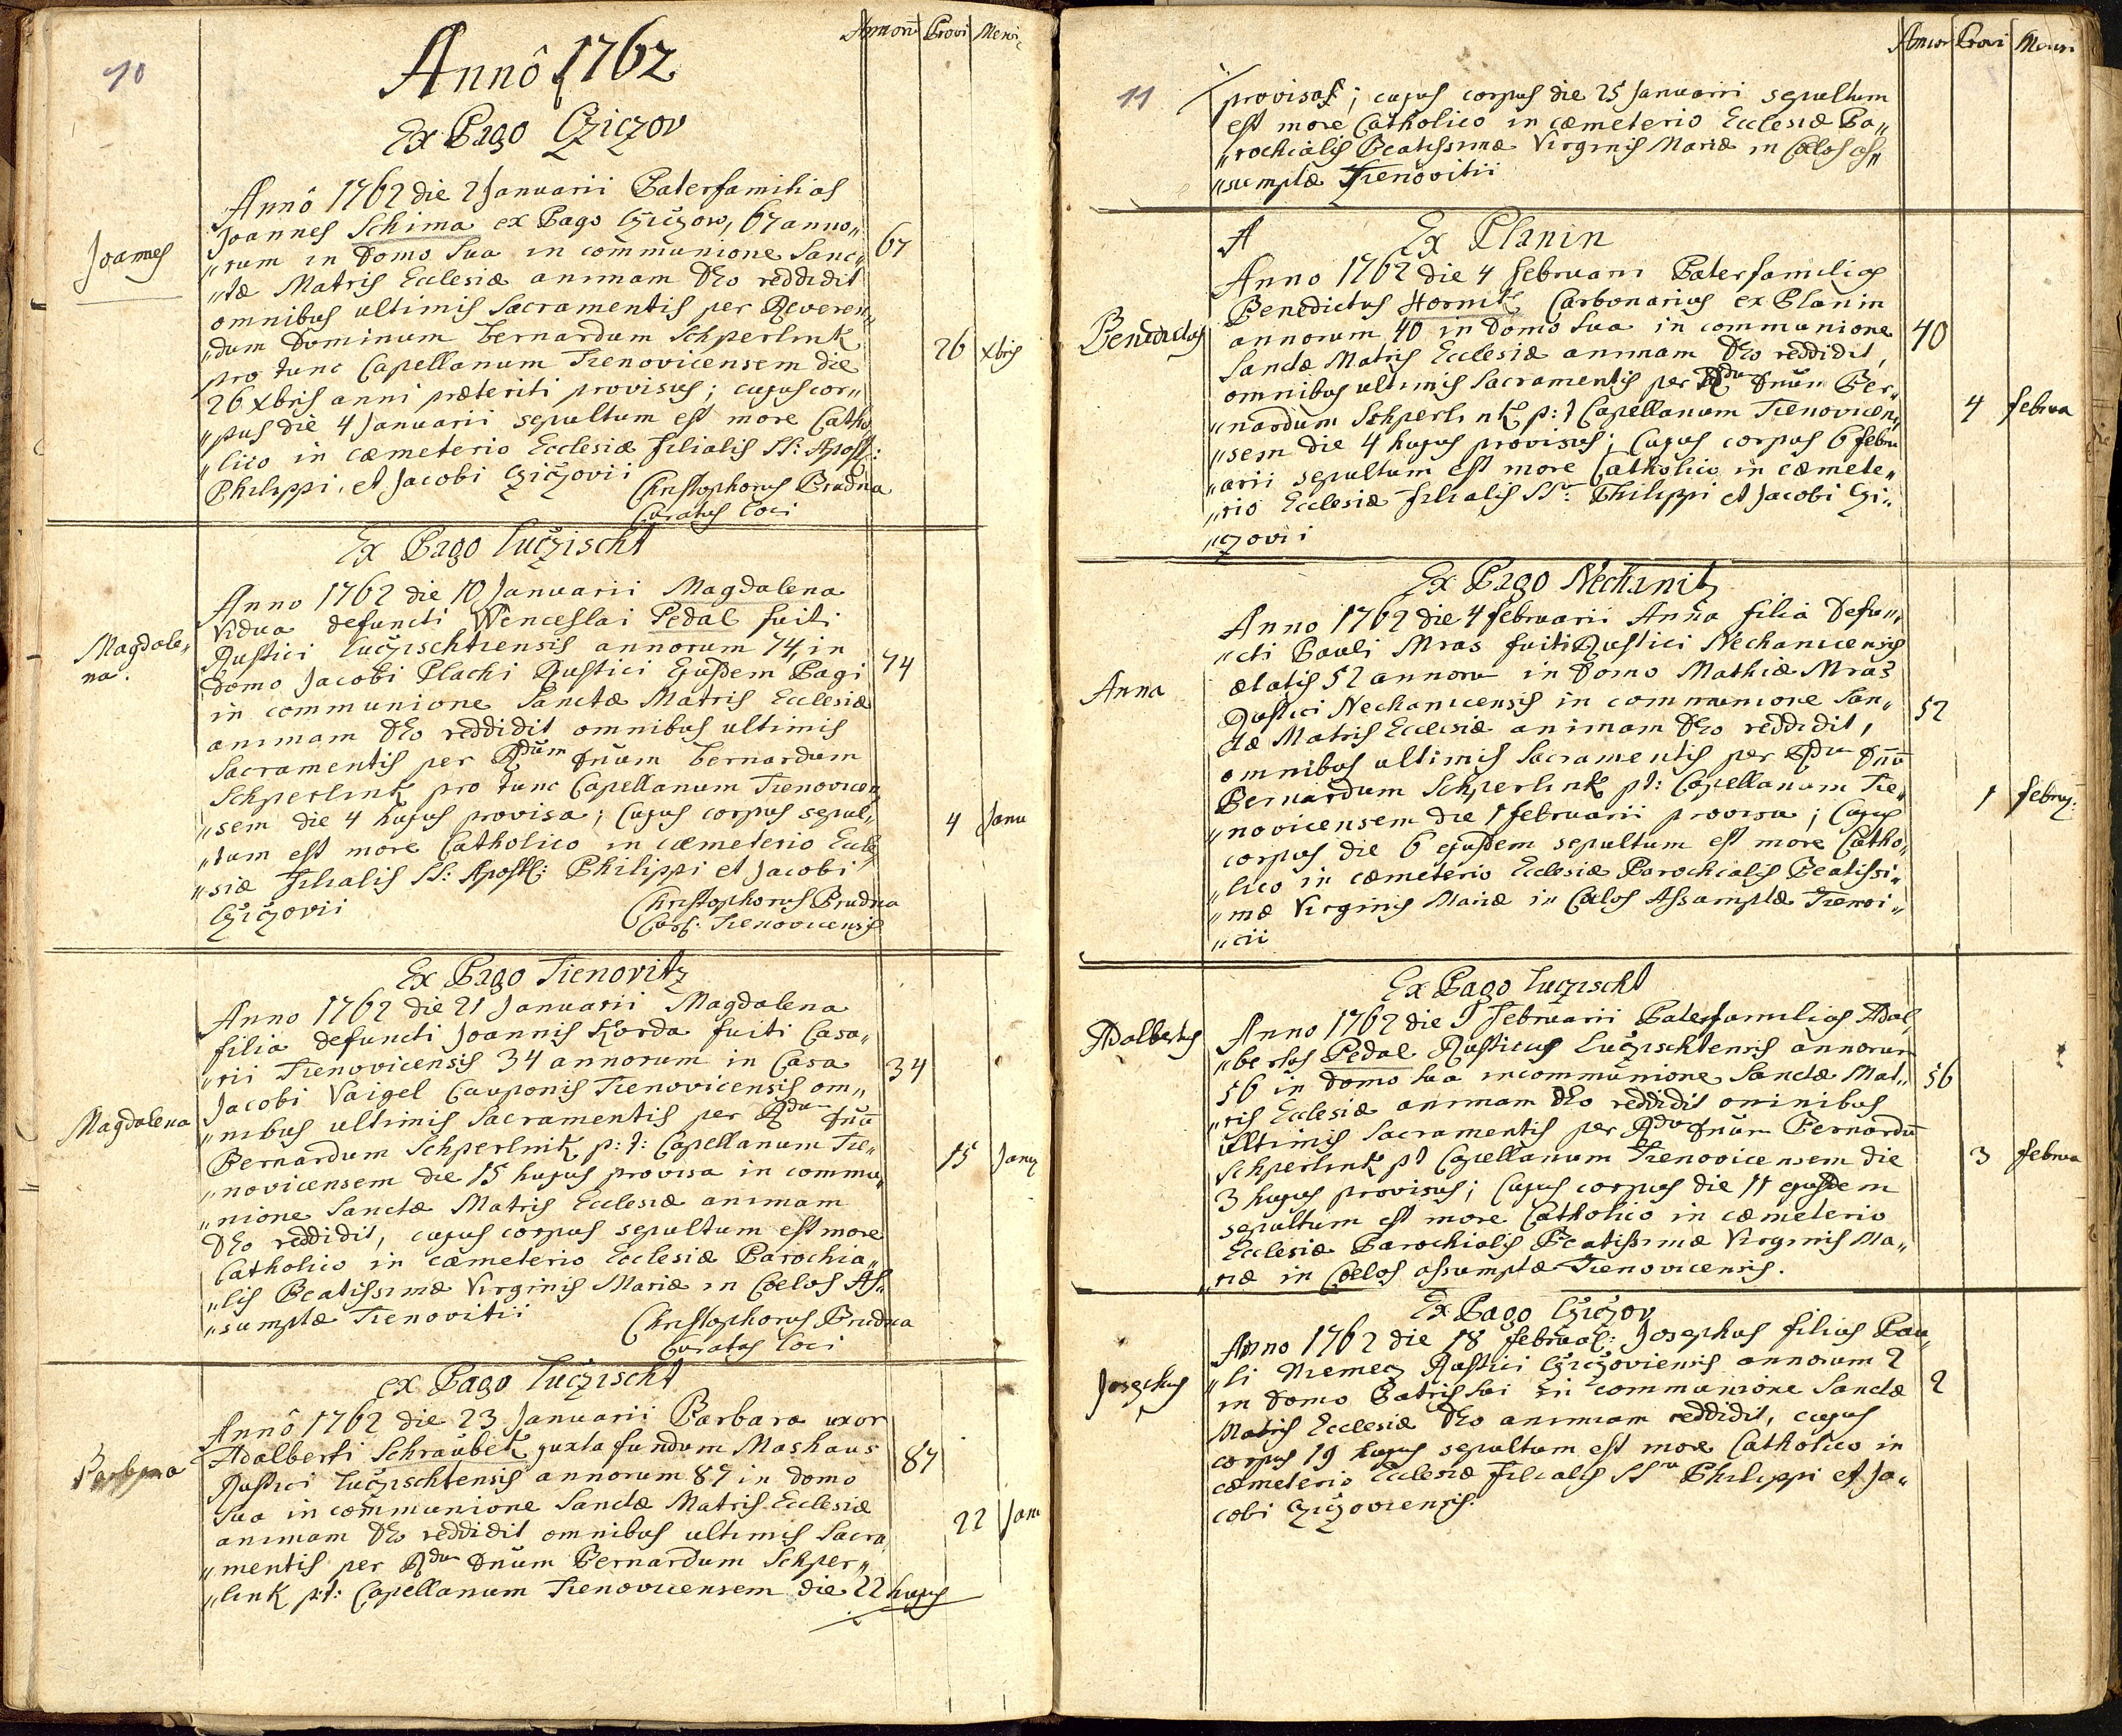 10
Annorū Provi Mensi
Annô 1762
Ex Pago Cziczov
Joannes
Annô 1762 die 2 Januarii Paterfamilias
Joannes Schima ex Pago Cziczow, 67 anno„
„rum in Domo sua in communione Sanc„
„tæ Matris Ecclesiæ animam Deo reddidit
omnibus ultimis Sacramentis per Reveren„
„dum Dominum Bernardum Schperlink
pro tunc Capellanum Trenovicensem die
26 Xbris anni præteriti provisus; cujus cor„
„pus die 4 Januarii sepultum est more Catho„
„lico in cæmeterio Ecclesiæ filialis SS: Apost:
Philippi, et Jacobi Cziczovii
Christophorus Brudna
Curatus loci
67
26 Xbris
Ex Pago Luczischt
Magdale„
na.
Anno 1762 die 10 Januarii Magdalena
Vidua defuncti Wenceslai Pedal fuiti
Rustici Luczischtiensis annorum 74, in
domo Jacobi Plachi Rustici Ejusdem Pagi
in communione Sanctæ Matris Ecclesiæ
animam Deo reddidit omnibus ultimis
Sacramentis per Rdum Dnum Bernardum
Schperlink pro tunc Capellanum Trenovicen„
„sem die 4 hujus provisa; Cujus corpus sepul„
„tum est more Catholico in cæmeterio Eccle„
„siæ filialis SS: Apostl: Philippi et Jacobi
Cziczovii
Christophorus Brudna
Trenovicensis
74
4 Janu
Ex Pago Trenovitz
Magdalena
Anno 1762 die 21 Januarii Magdalena
filia defuncti Joannis Korda fuiti Casa„
„rii Trenovicensis 34 annorum in Casa
Jacobi Vaigel Cauponis Trenovicensis om„
„nibus ultimis Sacramentis per Rdum Dnū
Bernardum Schperlink p: t: Capellanum Tre„
„novicensem die 15 hujus provisa in commu„
„nione Sanctæ Matris Ecclesiæ animam
Deo reddidit, cujus corpus sepultum est more
Catholico in cæmeterio Ecclesiæ Parochia„
„lis Beatissimæ Virginis Mariæ in Coelos As„
„sumptæ Trenovitii
Christophorus Brudna
Curatus loci
34
15 Janu
Ex Pago Luczischt
Barbara
Annô 1762 die 23 Januarii Barbara uxor
Adalberti Schraübek juxta fundum Mashaus
Rustici Luczischtensis annorum 87 in domo
sua in communione Sanctæ Matris Ecclesiæ
animam Deo reddidit omnibus ultimis Sacra„
„mentis per Rdum Dnum Bernardum Schper„
„link p:t: Capellanum Trenovicensem die 22 hujus
87
22 Janu
11
Annor Provi Mensi
provisa; cujus corpus die 25 Januarii sepultum
est more Catholico in cæmeterio Ecclesiæ Pa„
„rochialis Beatissimæ Virginis Mariæ in Coelos as„
„sumptæ Trenovitii
A
Ex Planin
Benedictus
Anno 1762 die 4 februarii Paterfamilias
Benedictus Hornik Carbonarius ex Planin
annorum 40 in Domo sua in communione
Sanctæ Matris Ecclesiæ animam Deo reddidit,
omnibus ultimis Sacramentis per Rdum Dnum Ber„
„nardum Schperlink p: t Capellanum Trenovicen„
„sem die 4 hujus provisus; Cujus corpus 6 febru
„arii sepultum est more Catholico in cæmete„
„rio Ecclesiæ filialis SS: Philippi et Jacobi Czi„
„czovii
40
4 februa
Ex Pago Nechanitz
Anna
Anno 1762 die 4 februarii Anna filia defun„
„cti Pauli Mras fuiti Rustici Nechanicensis
ætatis 52 annoru in Domo Mathiæ Mras
Rustici Nechanicensis in communione San„
ctæ Matris Ecclesiæ animam Deo reddidit,
omnibus ultimis Sacramentis per Rdum Dnū
Bernardum Schperlink pt: Capellanum Tre„
„novicensem die 1 februarii provisa; Cujus
corpus die 6 ejusdem sepultum est more Catho„
„lico in cæmeterio Ecclesiæ Parochialis Beatissi„
„mæ Virginis Mariæ in Coelos Assumptæ Trenovi„
„cii
52
1 februj:
Ex Pago Luczischt
Adalbertus
Anno 1762 die 9 februarii Paterfamilias Adal„
„bertus Pedal Rusticus Luczischtensis annorum
56 in Domo sua in communione Sanctæ Mat„
„ris Ecclesiæ animam Deo reddidit omnibus
ultimis Sacramentis per Rdum Dnum Bernardū
Schperlink pt Capellanum Trenovicensem die
3 hujus provisus; Cujus corpus die 11 ejusdem
sepultum est more Catholico in cæmeterio
Ecclesiæ Parochialis Beatissimæ Virginis Ma„
„riæ in Coelos assumptæ Trenovicensis.
56
3 februa
Ex Pago Cziczov
Josephus
Anno 1762 die 18 februar: Josephus filius Pau„
„li Niemecz Rustici Cziczoviensis annorum 2
in domo Patris sui in communione Sanctæ
Matris Ecclesiæ Deo animam reddidit, cujus
corpus 19 hujus sepultum est more Catholico in
cæmeterio Ecclesiæ filialis SS Philippi et Ja„
cobi Cziczoviensis.
2